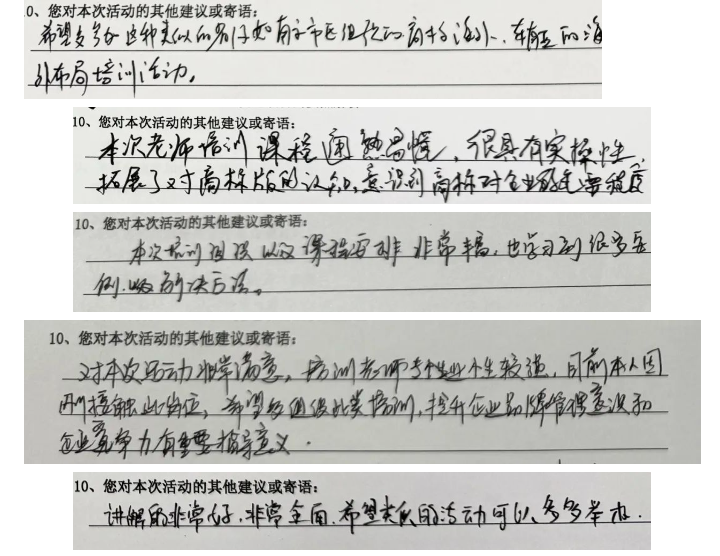 0、您对本次活动的其他建议或寄语:
希望多多办这种类似的
外布局培训活动。
10、您对本次活动的其他建议或寄语:
本次老师培训课程通熟易懂，很具有实操性，
拓展了对商标版的认知，意识到商标对企业的重要程度
10、您对本次活动的其他建议或寄语:
本次培训组织以及课程安排非常丰富，也学习到很多案
例，以及解决方法。
10、您对本次活动的其他建议或寄语:
对本次活动非常满意，培训老师专业性较强，目前本人因
刚接触此岗位，希望多组织此类培训，提升企业品牌管理意识和
企业竞争力有重要指导意义.
10、您对本次活动的其他建议或寄语:
讲解的非常好，非常全面，希望类似的活动可以多多举办.